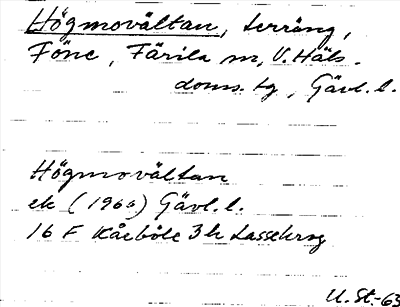 Högmovältan, terräng,
Föne, Färila sn, V. Häls.
doms. tg, Gävl. l.
Högmovältan
ek (1960) Gävl. l.
16 F Kårböle 3 h Lassekrog
U. St.-63